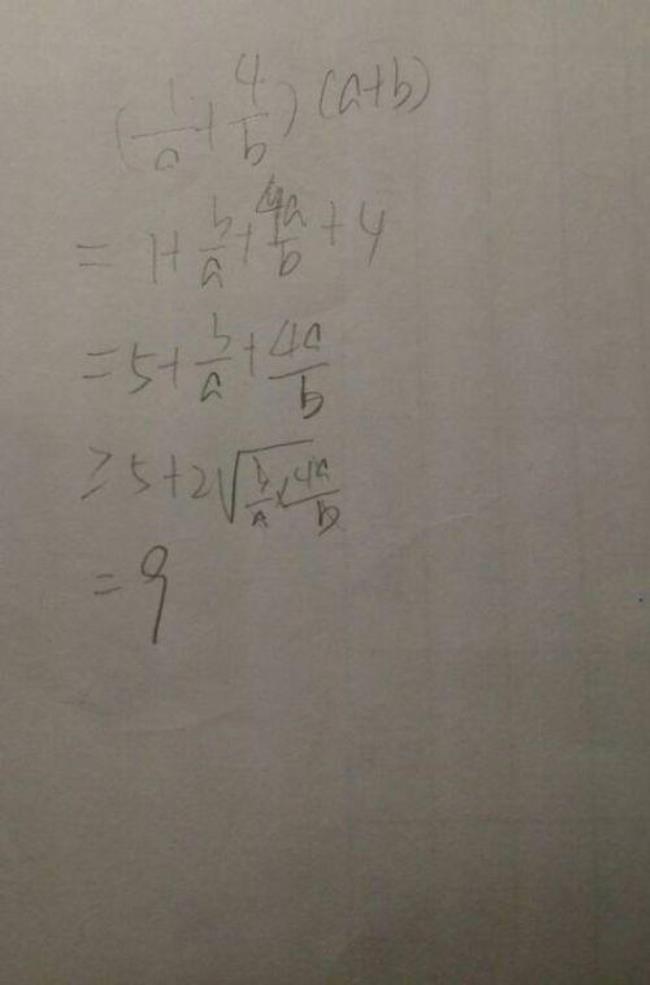 (1/a + 4/b)(a+b)
= 1 + b/a + 4a/b + 4
= 5 + b/a + 4a/b
≥ 5 + 2√(b/a × 4a/b)
= 9